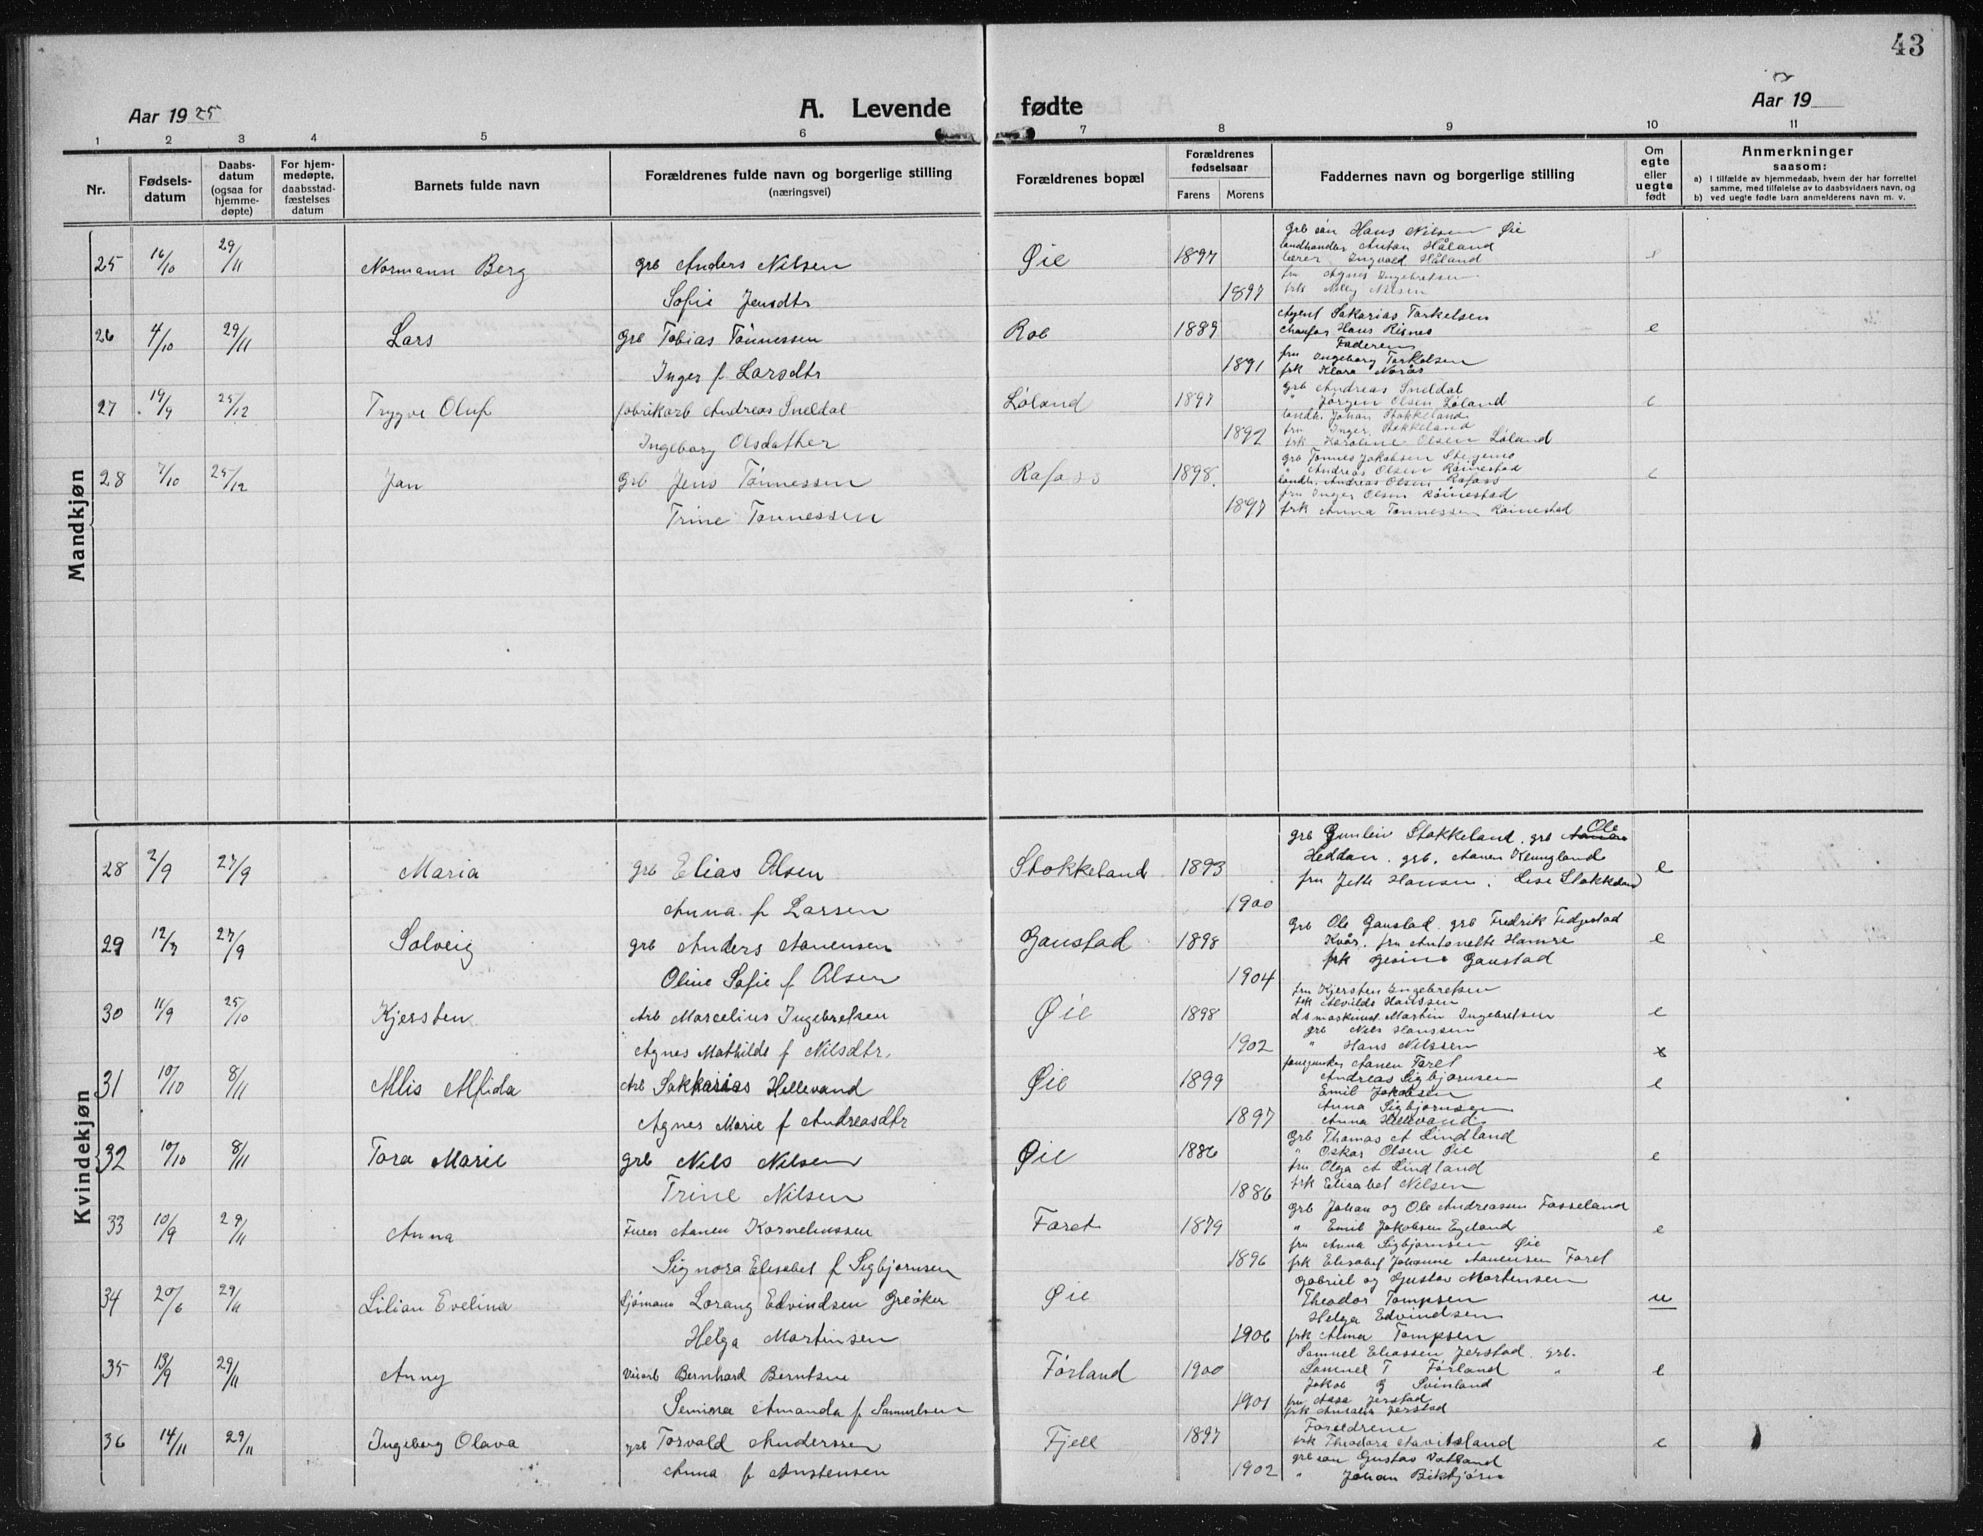 43
Aar 1925 A. Levende fødte Aar 19
1 2 3 4 5 6 7 8 9 10 11
Nr. Fødselsdatum Daabsdatum (ogsaa for hjemmedøpte) For hjemmedøpte, daabsstadfæstelses datum Barnets fulde navn Forældrenes fulde navn og borgerlige stilling (næringsvei) Forældrenes bopæl Forældrenes fødselsaar Farens Morens Faddernes navn og borgerlige stilling Om egte eller uegte født Anmerkninger saasom:
a) I tilfælde av hjemmedaab, hvem der har forrettet samme, med tilføielse av to daabsvidners navn, og
b) ved uegte fødte barn anmelderens navn m. v.
Mandkjøn
25 16/10 29/11 Normann Berg grb Anders Nilsen Øie 1897
Sofie Jensdtr 1897
grb søn Hans Nilsen Øie
landhandler Anton Håland
lærer Ingvald Håland
fru Agnes Ingebretsen
frk Nelly Nilsen
26 4/10 29/11 Lars grb Tobias Tønnessen Rob 1889 e
Inger f Larsdtr 1891
Agent Sakarias Torkelsen
Hans Risnes
Faderen
fru Ingeborg Torkelsen
frk Klara Norås
27 19/9 25/12 Trygve Oluf fabrikarb Andreas Sneldal Løland 1897 e
Ingeborg Olsdatter 1892
grb Andreas Sneldal
" Jørgen Olsen Løland
landh. Johan Stokkeland
fru Inger Stokkeland
frk Karoline Olsen Løland
28 7/10 25/12 Jan grb Jens Tønnessen Rafoss 1898 e
Trine Tønnessen 1897
grb Tønnes Jakobsen
" Andreas Olsen Røinestad
landh. Andreas Olsen Rafoss
fru Inger Olsen Røinestad
frk Anna Tønnessen Røinestad
Kvindekjøn
28 2/9 27/9 Maria grb Elias Olsen Stokkeland 1893 e
Anna f Larsen 1900
grb Gunleiv Stokkeland. grb Ole
Heddan. grb. Aanen
fru Jette Hansen. Lise Stokkeland
29 12/7 27/9 Solveig grb Anders Aanensen Gaustad 1898 e
Oline Sofie f Olsen 1904
Grb Ole Gaustad. grb Fredrik
fru Antonette Hamre
frk Gesine Gaustad
30 11/9 25/10 Kjersten Arb Marcelius Ingebretsen Øie 1898 e
Agnes Mathilde f Nilsdtr. 1902
fru Kjersten Ingebretsen
frk Alvilde Hanssen
Martin Ingebretsen
grb Nils Hanssen
" Hans Nilssen
31 10/10 8/11 Alis Alfida Arb Sakkarias Hellevand Øie 1899 e
Agnes Marie f Andreasdtr 1897
Aanen Faret
Andreas Sigbjørnsen
Emil Jakobsen
Anna Sigbjørnsen
Anna Hellevand
32 10/10 8/11 Tora Marie grb Nils Nilsen Øie 1886 e
Trine Nilsen 1886
Grb Thomas A Lindland
" Oskar Olsen Øie
fru Olga A Lindland
frk Elisabet Nilsen
33 10/9 29/11 Anna Aanen Korneliussen Faret 1879 e
Signora Elisabet f Sigbjørnsen 1896
grb Johan og Ole Andreassen Fosseland
" Emil Jakobsen Egeland
fru Anna Sigbjørnsen Øie
frk Elisabet Johanne Aanensen Faret
34 20/6 29/11 Lilian Evelina Sjømann Lorang Edvindsen Greåker Øie u
Helga Martinsen 1906
Gabriel og Gustav Martensen
Theodor Tompsen
Helga Edvindsen
frk Alma Tompsen
35 13/9 29/11 Anny Bernhard Berntsen Førland 1900 e
Semine Amanda f Samuelsen 1901
Samuel Eliassen Jerstad. grb.
Samuel T Førland "
Jakob G Svinland
fru Aasa Jerstad
frk Jerstad
36 14/11 29/11 Ingeborg Olava grb Torvald Anderssen Fjell 1897 e
Anna f Anstensen 1902
Foreldrene
frk Theodora
grb søn Gustav
" Johan